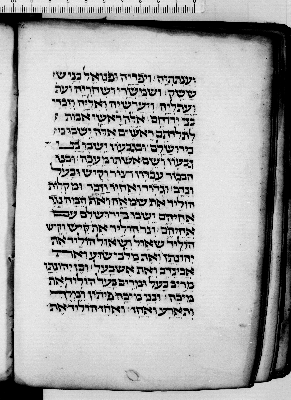 וענתתיה׃ ויפדיה ופנואל בני ש
ששק׃ ושמשרי ושחריה ועת
ועתליה׃ ויערשיה ואליה וזכרי
בני ירחם׃ אלה ראשי אבות
לתלדותם ראשים אלה ישבו בי
בירושלם׃ ובגבעון ישבו אבי
גבעון ושם אשתו מעכה׃ ובנו
הבכור עבדון וצור וקיש ובעל
ונדב׃ וגדור ואחיו וזכר׃ ומקלות
הוליד את שמאה ואף המה נגד
אחיהם ישבו בירושלם עם
אחיהם׃ ונר הוליד את קיש וקיש
הוליד שאול ושאול הוליד את
יהונתן ואת מלכי שוע ואת
אבינדב ואת אשבעל׃ ובן יהונתן
מריב בעל ומריב בעל הוליד את
מיכה׃ ובני מיכה פיתון ומלך
ותארע ואחז׃ ואחז הוליד את